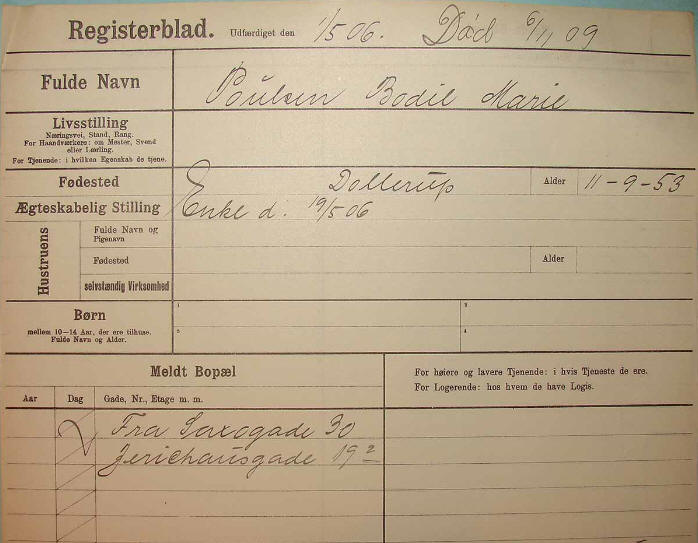 Registerblad. Udfærdiget den 1/5 06. Død 6/11 09
Fulde Navn Poulsen Bodil Marie
Livsstilling
Næringsvei, Stand, Rang.
For Haandværkere: om Mester, Svend
eller Lærling.
For Tjenende: i hvilken Egenskab de tjene.
Fødested Dollerup Alder 11-9-53
Ægteskabelig Stilling Enke d. 19/5 06
Hustruens
Fulde Navn og
Pigenavn
Fødested Alder
selvstændig Virksomhed
Børn
mellem 10—14 Aar, der ere tilhuse.
Fulde Navn og Alder.
1 2
3 4
Meldt Bopæl
For høiere og lavere Tjenende: i hvis Tjeneste de ere.
For Logerende: hos hvem de have Logis.
Aar Dag Gade, Nr., Etage m. m.
Fra Saxogade 30
Jerichausgade 19 2